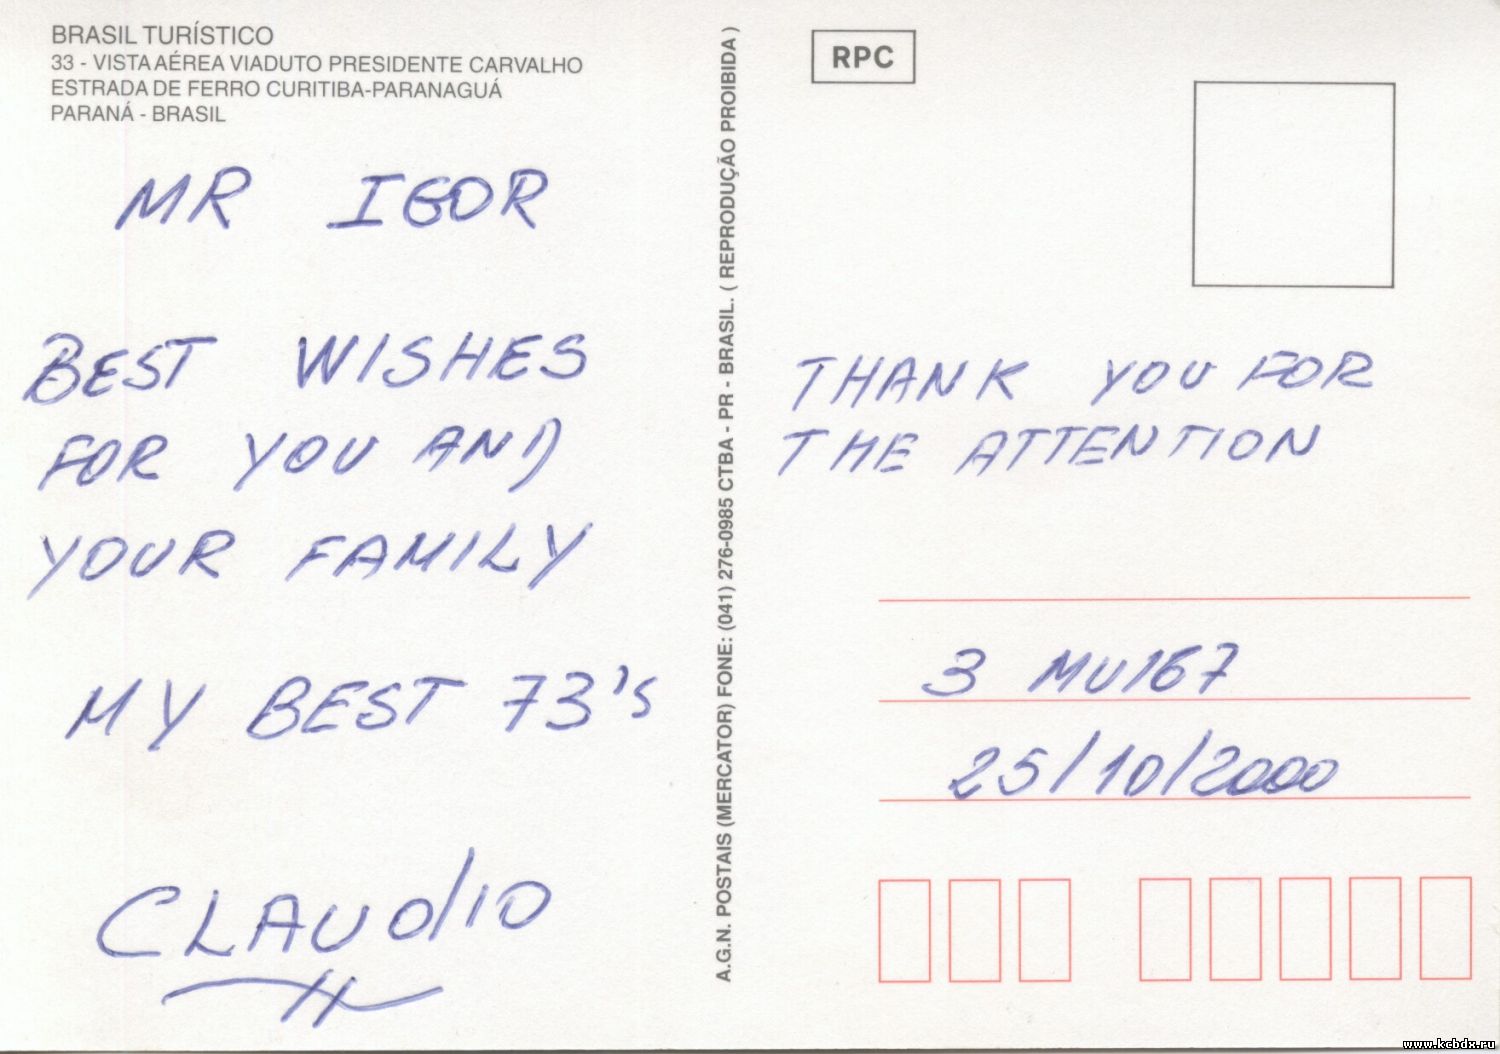 BRASIL TURÍSTICO
33 - VISTA AÉREA VIADUTO PRESIDENTE CARVALHO
ESTRADA DE FERRO CURITIBA-PARANAGUÁ
PARANÁ - BRASIL
MR IGOR
BEST WISHES
FOR YOU AND
YOUR FAMILY
MY BEST 73's
CLAUdIO
A.G.N. POSTAIS (MERCATOR) FONE: (041) 276-0985 CTBA - PR - BRASIL. ( REPRODUÇÃO PROIBIDA )
RPC
THANK YOU FOR
THE ATTENTION
3 MU167
25/10/2000
www.kcbdx.ru